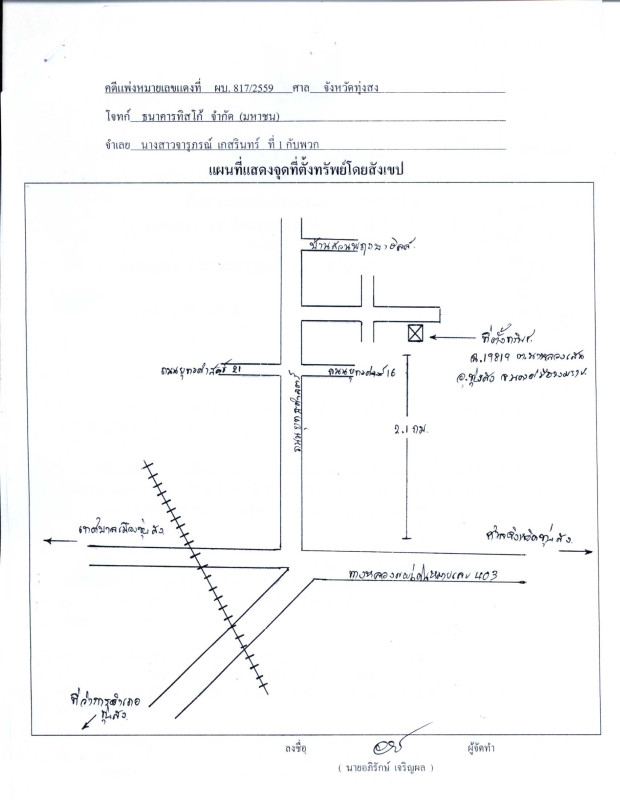 คดีแพ่งหมายเลขแดงที่ ผบ. 817/2559 ศาล จังหวัดทุ่งสง
โจทก์ ธนาคารทิสโก้ จำกัด (มหาชน)
จำเลย นางสาวจารุภรณ์ เกสรินทร์ ที่ 1 กับพวก
แผนที่แสดงจุดที่ตั้งทรัพย์โดยสังเขป
บ้านสวนพฤกษาฮิลล์
ที่ตั้งทรัพย์
ฉ.19819 ต.นาหลวงเสน
อ.ทุ่งสง จ.นครศรีธรรมราช
ถนนยุทธศาสตร์ 21
ถนนยุทธศาสตร์ 16
ถนนยุทธศาสตร์
2.1 กม.
เทศบาลเมืองทุ่งสง
ศาลจังหวัดทุ่งสง
ทางหลวงแผ่นดินหมายเลข 403
ที่ว่าการอำเภอ
ทุ่งสง
ลงชื่อ ผู้จัดทำ
( นายอภิรักษ์ เจริญผล )